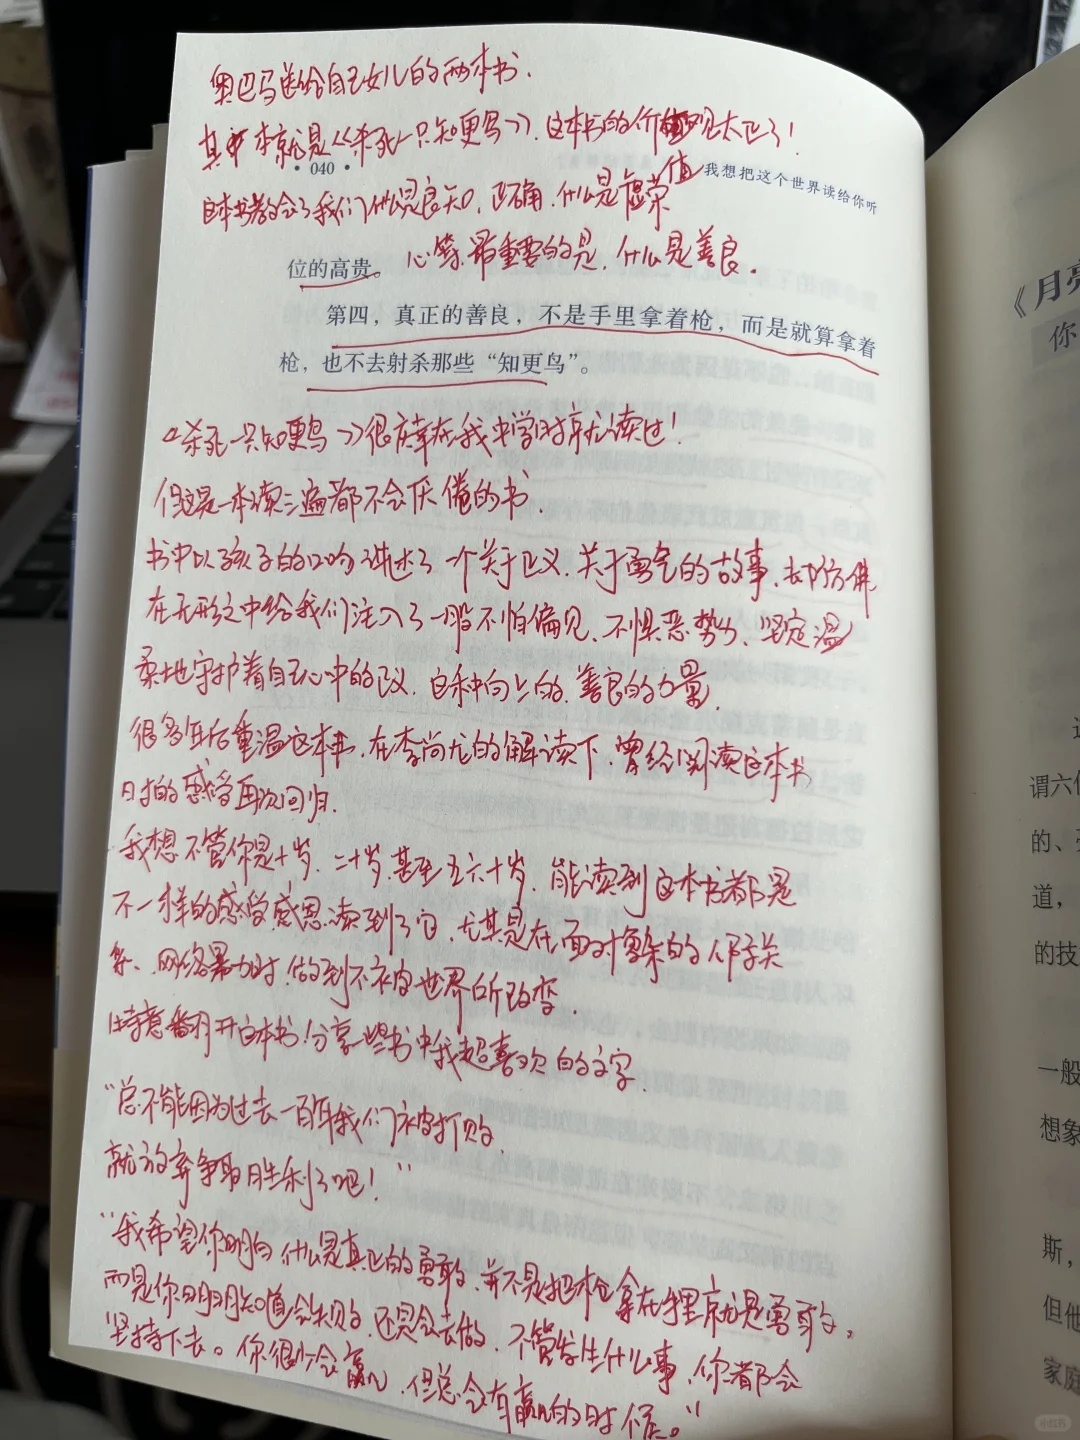 奥巴马送给自己女儿的两本书.
其中一本就是《杀死一只知更鸟》,这本书的价值观太正了!
· 040 ·
值 我想把这个世界读给你听
这本书教会了我们什么是良知,正确,什么是虚荣
心等,最重要的是,什么是善良.
位的高贵。
第四,真正的善良,不是手里拿着枪,而是就算拿着
枪,也不去射杀那些“知更鸟”。
《杀死一只知更鸟》很庆幸在我中学时就读过!
但这是一本读三遍都不会厌倦的书.
书中以孩子的口吻讲述了一个关于正义.关于勇气的故事,却仿佛
在无形之中给我们注入了一股不怕偏见、不惧恶势力、坚定温
柔地守护着自己心中的正义,这种向上的,善良的力量.
很多年后重温这本书,在李尚龙的解读下,曾经阅读这本书
时的感受再次回归.
我想不管你是十岁,二十岁,甚至五六十岁,能读到这本书都是
不一样的感受,感恩读到了它,尤其是在面对复杂的人际关
系、网络暴力时,做到不被世界所改变.
特意翻开这本书,分享一些书中我超喜欢的文字.
“总不能因为过去一百年我们被打败
就放弃争取胜利了吧!”
“我希望你明白什么是真正的勇敢,并不是把枪拿在手里就是勇敢,
而是你明明知道会失败,还是会去做,不管发生什么事,你都会
坚持下去。你很少会赢,但总会有赢的时候。”
《月亮
你
谓六位
的、
道,
的技
一般
想象
斯,
但他
家庭
小红书